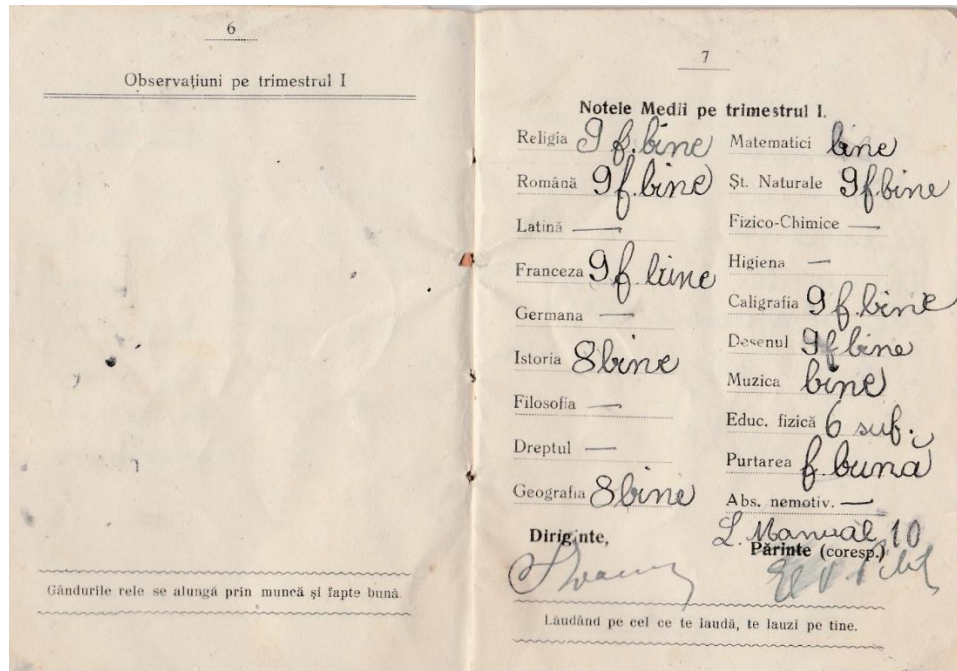 6
Observațiuni pe trimestrul I
Gândurile rele se alungă prin muncă și fapte bună.
7
Notele Medii pe trimestrul I.
Religia 9 f. bine
Română 9 f. bine
Latină —
Franceza 9 f. bine
Germana —
Istoria 8 bine
Filosofia —
Dreptul —
Geografia 8 bine
Matematici bine
Șt. Naturale 9 f bine
Fizico-Chimice —
Higiena —
Caligrafia 9 f. bine
Desenul 9 f bine
Muzica bine
Educ. fizică 6 suf.
Purtarea f. bună
Abs. nemotiv. —
L. Manual 10
Diriginte,
Părinte (coresp.)
Lăudând pe cel ce te laudă, te lauzi pe tine.